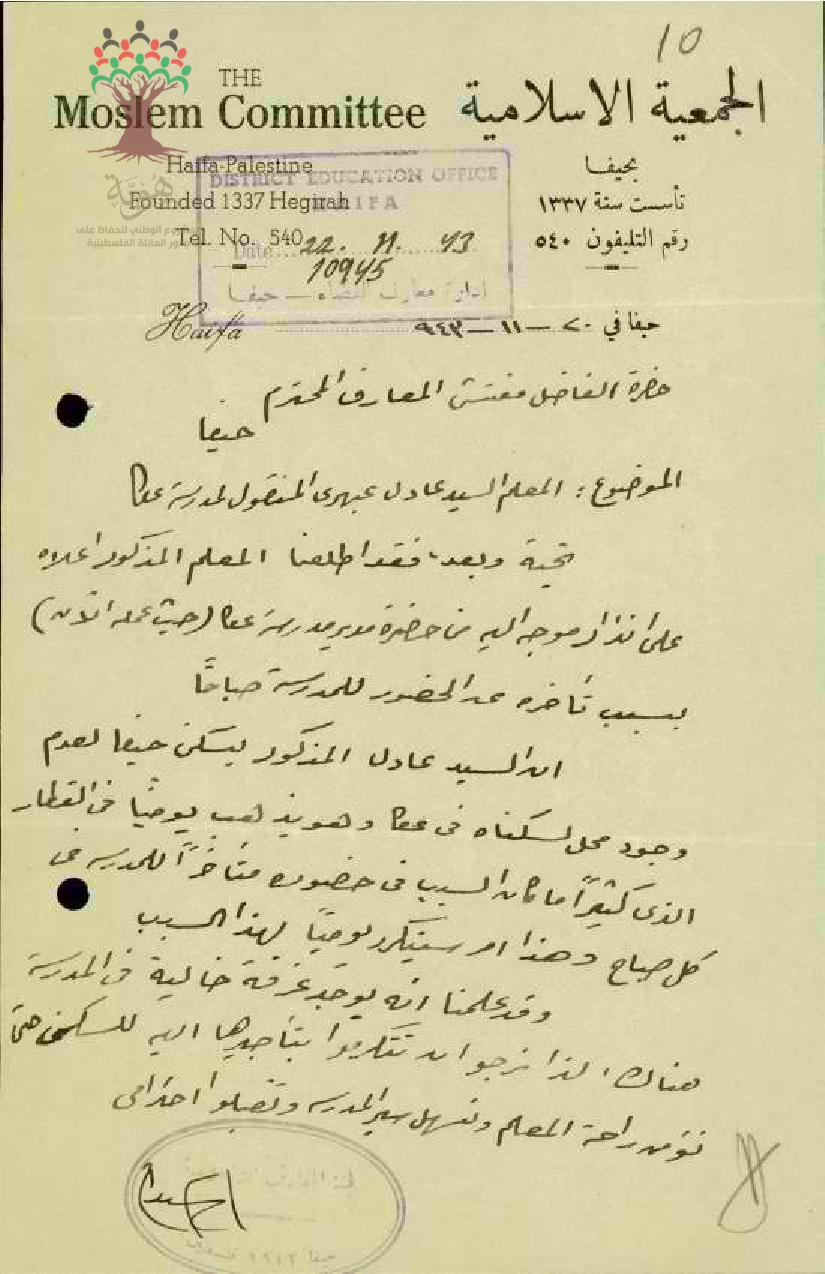 10
THE
Moslem Committee
Haifa-Palestine
Founded 1337 Hegirah
Tel. No. 540
الجمعية الاسلامية
بحيفا
تأسست سنة ١٣٣٧
رقم التليفون ٥٤٠
هُوِيَّة
المشروع الوطني للحفاظ على
جذور العائلة الفلسطينية
DISTRICT EDUCATION OFFICE
HAIFA
Date 22. 11. 43
10945
ادارة معارف القضاء – حيفا
Haifa
حيفا في ٢٠ – ١١ – ٩٤٣
حضرة الفاضل مفتش المعارف المحترم
حيفا
الموضوع: المعلم السيد عادل عبهري المنقول لمدرسة عكا
تحية وبعد، فقد اطلعنا المعلم المذكور اعلاه
على انذار موجه اليه من حضرة مدير مدرسة عكا (حيث عمله الآن)
بسبب تأخره عن الحضور للمدرسة صباحًا
ان السيد عادل المذكور يسكن حيفا لعدم
وجود محل لسكناه في عكا وهو يذهب يوميًا في القطار
الذي كثيرًا ما كان السبب في حضوره متأخرًا للمدرسة في
كل صباح وهذا امر سيتكرر يوميًا لهذا السبب
وقد علمنا انه يوجد غرفة خالية في المدرسة
هناك، لذا نرجو ان تتكرموا بتأجيرها اليه للسكن حتى
نؤمن راحة المعلم ونسهل سير المدرسة وتقبلوا احترامي
لجنة المعارف
حيفا ١٩٤٢ فلسطين